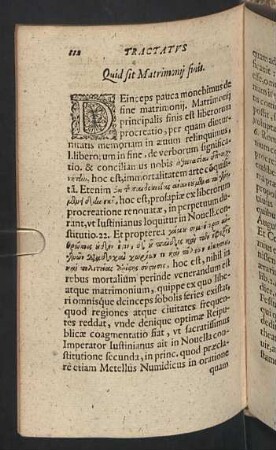 112 TRACTATVS
Quid sit Matrimonij finis.
DEinceps pauca monebimus de
fine matrimonij. Matrimonij
principalis finis est liberorum
procreatio, per quam diutur-
nitatis memoriam in æuum relinquimus,
l. liberorum in fine, de verborum significa-
tio. & concilianus nobis
hoc est, immortalitatem arte
tā. Etenim
hoc est, prosapiæ ex liberorum
procreatione renouatæ, in perpetuum du-
rant, vt Iustinianus loquitur in Nouell. con-
stitutio. 22. Et propterea
hoc est, nihil in
rebus mortalium perinde venerandum est
atque matrimonium, quippe ex quo libe-
ri omnisque deinceps sobolis series existat,
quod regiones atque ciuitates frequen-
tes reddat, vnde denique optimæ Reipu-
blicæ coagmentatio fiat, vt sacratissimus
Imperator Iustinianus ait in Nouella con-
stitutione secunda, in princ. quod præcla-
rè etiam Metellus Numidicus in oratione
quam